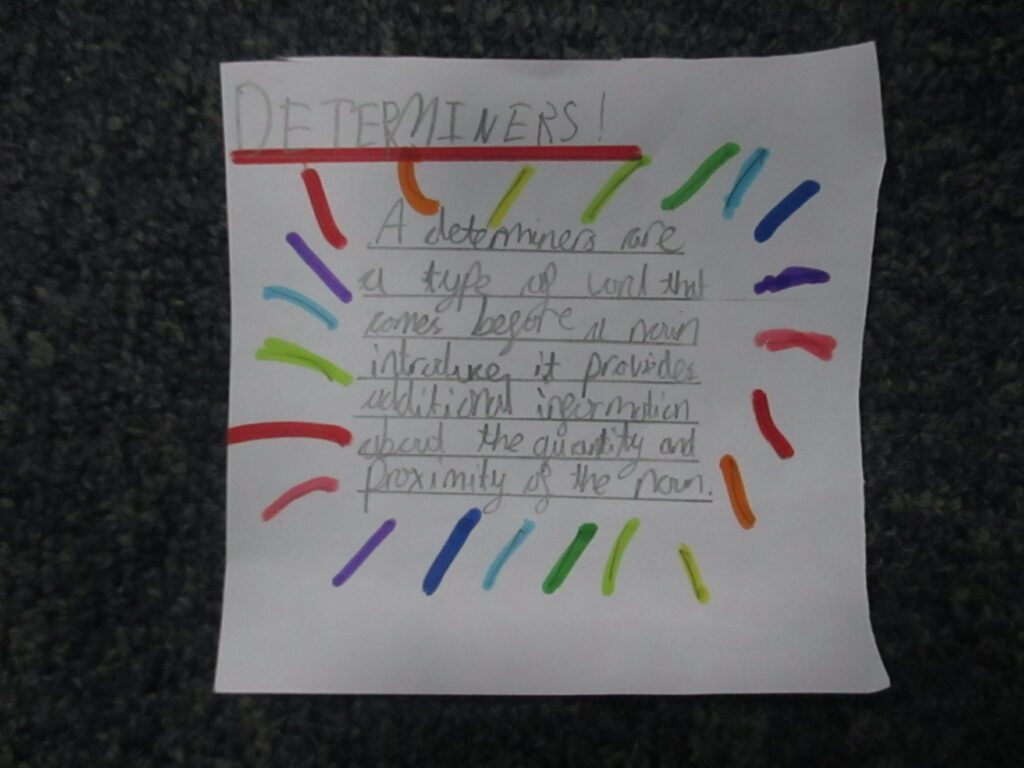 DETERMINERS!
A determiners are
a type of word that
comes before a noun
introduce, it provides
additional information
about the quantity and
proximity of the noun.